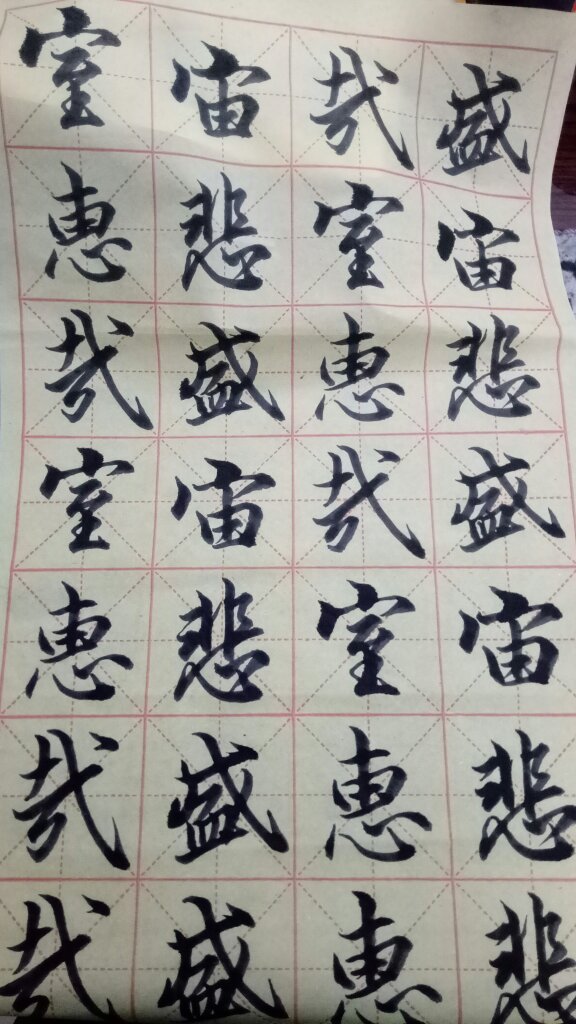 室宙哉盛
恵悲室宙
哉盛恵悲
室宙哉盛
恵悲室宙
哉盛恵悲
哉盛恵悲